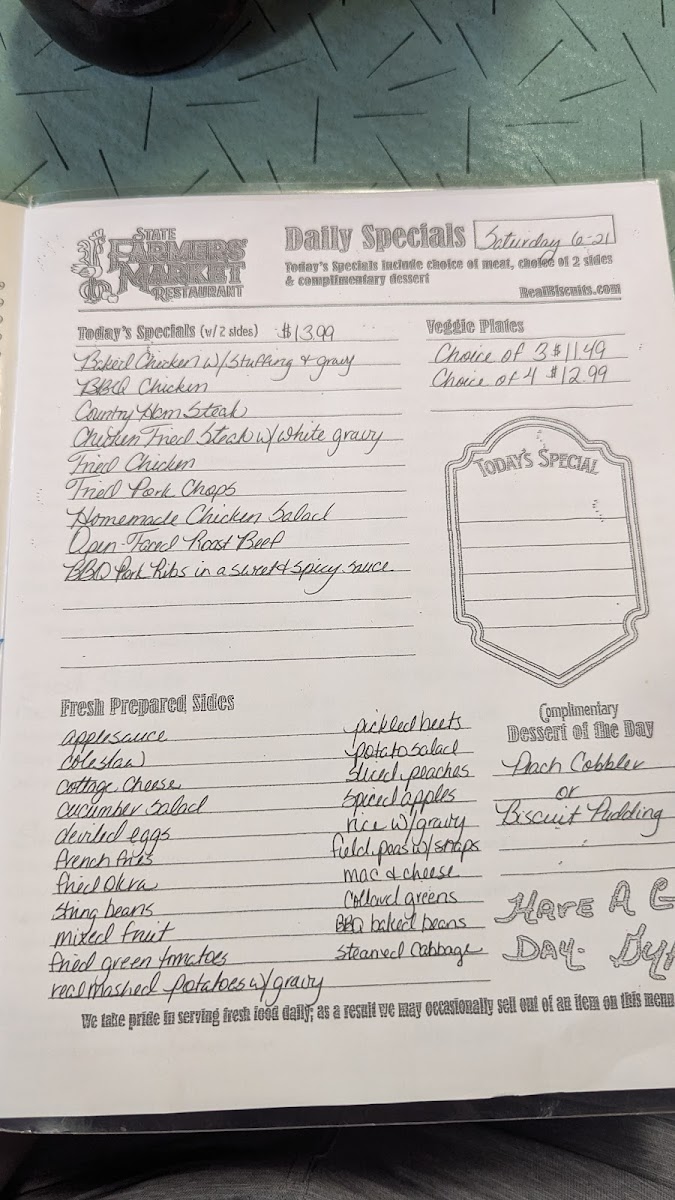 STATE
FARMERS'
MARKET
RESTAURANT
Daily Specials
Saturday 6-21
Today's Specials include choice of meat, choice of 2 sides
& complimentary dessert
RealBiscuits.com
Today's Specials (w/2 sides) $13.99
Baked Chicken w/Stuffing & gravy
BBQ Chicken
Country Ham Steak
Chicken Fried Steak w/white gravy
Fried Chicken
Fried Pork Chops
Homemade Chicken Salad
Open-Faced Roast Beef
BBQ Pork Ribs in a sweet & spicy sauce
Veggie Plates
Choice of 3 $11.49
Choice of 4 $12.99
TODAY'S SPECIAL
Fresh Prepared Sides
applesauce
coleslaw
cottage cheese
cucumber salad
deviled eggs
french fries
fried okra
string beans
mixed fruit
fried green tomatoes
real mashed potatoes w/gravy
pickled beets
potato salad
sliced peaches
spiced apples
rice w/gravy
field peas w/snaps
mac & cheese
collard greens
BBQ baked beans
steamed cabbage
Complimentary
Dessert of the Day
Peach Cobbler
or
Biscuit Pudding
HAVE A G
DAY-
We take pride in serving fresh food daily; as a result we may occasionally sell out of an item on this menu